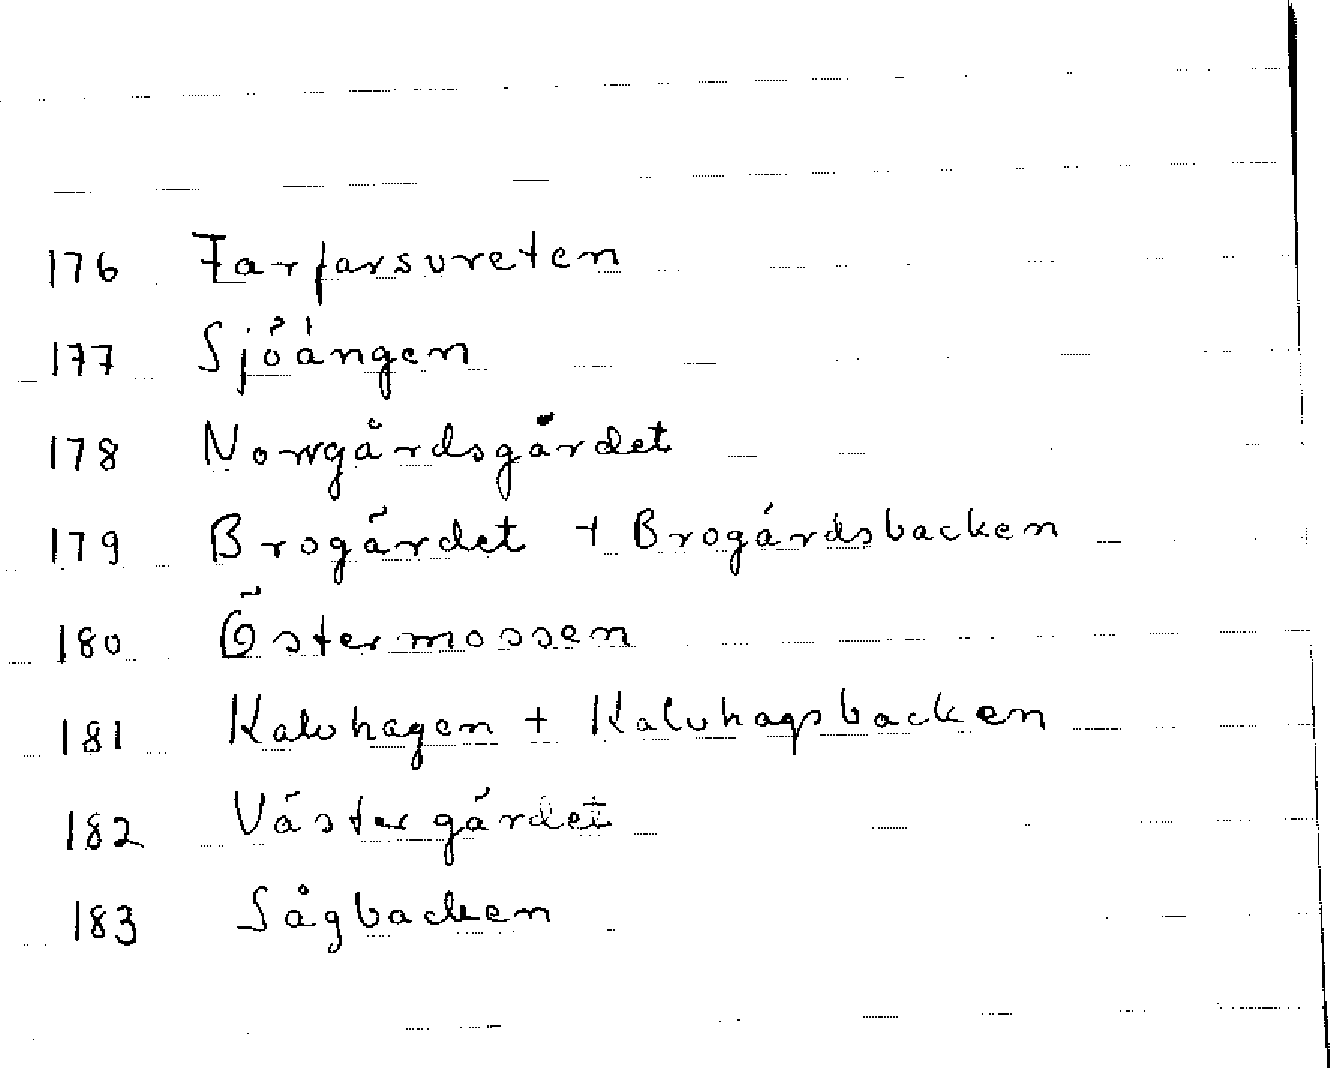 176 Farfarsvreten
177 Sjöängen
178 Norrgårdsgärdet
179 Brogärdet + Brogärdsbacken
180 Östermossen
181 Kalvhagen + Kalvhagsbacken
182 Västergärdet
183 Sågbacken